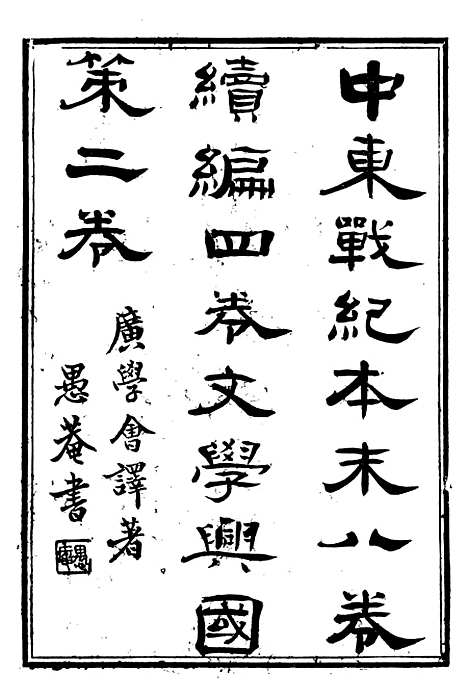 中東戰紀本末八卷
續編四卷文學興國
策二卷
廣學會譯著
愚菴書